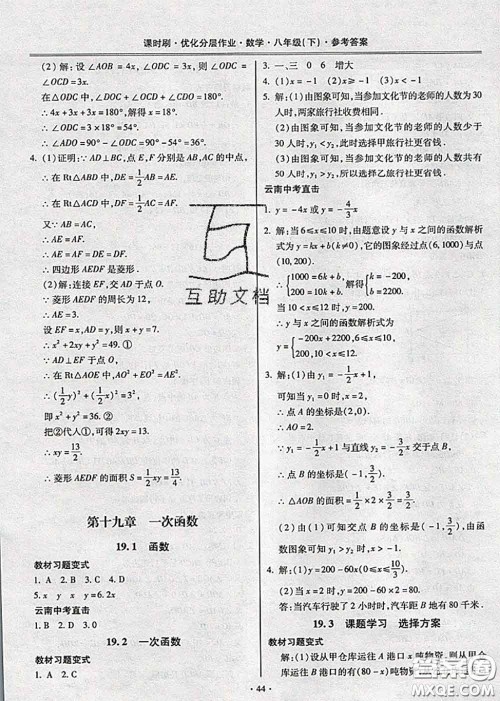 课时刷·优化分层作业·数学·八年级(下)·参考答案
(2)解:设∠ADO=4x,∠ODC=3x,则∠ODC
=∠OCD=3x.
在△ODC中,∠DOC+∠OCD+∠ODC=180°.
∴4x+3x+3x=180°.
∴∠ODC=3×18°=54°.
∴∠ADO=90°-∠ODC=90°-54°=36°.
4. (1)证明:∵AD⊥BC,点E,F分别是AB,AC的中点,
∴在Rt△ABD中,DE=1/2AB=AE,
在Rt△ACD中,DF=1/2AC=AF.
又∵AB=AC,
∴AE=AF.
∴AE=AF=DE=DF.
∴四边形AEDF是菱形.
(2)解:连接EF交AD于点O.
∵菱形AEDF的周长为12,
∴AE=3.
设EF=x,AD=y,则x+y=7.
∴x²+2xy+y²=49.①
∵AD⊥EF于点O,
∴在Rt△AOE中,AO²+EO²=AE².
∴(1/2y)²+(1/2x)²=3².
即x²+y²=36.②
把②代入①,可得2xy=13.
∴xy=13/2.
∴菱形AEDF的面积S=1/2xy=13/4.
第十九章 一次函数
19.1 函数
教材习题变式
1. A 2. B 3. C 4. D
5. x y x y=6.2x
云南中考直击
1. D 2. B
19.2 一次函数
教材习题变式
1. A 2. C
4. 一、三 0 6 增大
5. (1)由图象可知,当参加文化节的老师的人数为30人时,
两家旅行社收费相同.
(2)由图象可知,当参加文化节的老师的人数少于30人
时,y₁<y₂,此时选择甲旅行社更省钱.
(3)由图象可知,当参加文化节的老师的人数共有50人
时,y₁>y₂,所以选择乙旅行社更省钱.
云南中考直击
1. y=-4x或y=-4/3x
2. 解:当6≤x≤10时,由题意设y与x之间的函数解析
式为y=kx+b(k≠0),它的图象经过点(6,1000)与点
(10,200).
∴{1000=6k+b, 200=10k+b.解得{k=-200, b=2200.
当10<x≤12时,y=200.
∴y与x之间的函数解析式为
y={-200x+2200,6≤x≤10, 200,10<x≤12.
3. 解:(1)由y₁=-1/2x+1可知当y=0时,x=2,
∴点A的坐标是(2,0).
∴AO=2.
∵y₁=-1/2x+1与直线y₂=-3/2x交于点B,
∴点B的坐标是(-1,3/2).
∴△AOB的面积=1/2×2×3/2=3/2.
(2)由(1)可知交点B的坐标是(-1,3/2),由函数图
象可知y₁>y₂时,x>-1.
4. 解:(1)y=200-60x(0≤x≤10/3).
(2)答:当汽车行驶了2小时时,汽车距B地有80千米.
19.3 课题学习 选择方案
教材习题变式
解:(1)设从甲仓库运往A港口x吨物资,则从甲
仓库运往B港口的有(80-x)吨物资,
·44·
互助文档
答案圈
MXQE.COM